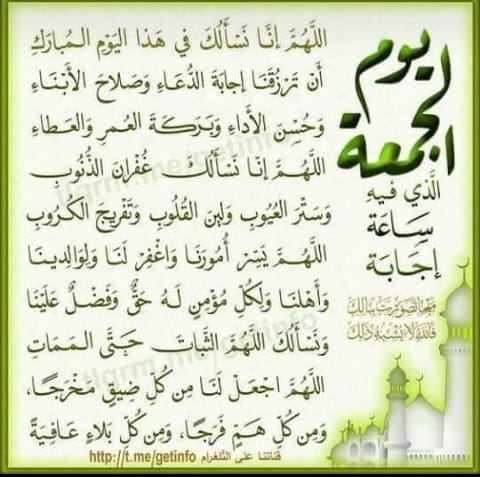 يوم
الجمعة
الَّذِي فِيهِ
سَاعَة
إجَابَة
اللَّهُمَّ إنَّا نَسْأَلُكَ فِي هَذَا اليَوْمِ المُبَارَكِ
أَنْ تَرْزُقَنَا إجَابَةَ الدُّعَاءِ وَصَلَاحَ الأَبْنَاءِ
وَحُسْنَ الأَدَاءِ وَبَرَكَةَ العُمرِ وَالعَطَاءِ
اللَّهُمَّ إنَّا نَسْأَلُكَ غُفْرَانَ الذُّنُوبِ
وَسَتْرَ العُيُوبِ وَلِينَ القُلُوبِ وَتَفْرِيجَ الكُرُوبِ
اللَّهُمَّ يَسِّرْ أُمُورَنَا وَاغْفِرْ لَنَا وَلِوَالِدِينَا
وَأَهْلِنَا وَلِكُلِّ مُؤْمِنٍ لَهُ حَقٌّ وَفَضْلٌ عَلَيْنَا
وَنَسْأَلُكَ اللَّهُمَّ الثَّبَاتَ حَتَّى المَمَاتِ
اللَّهُمَّ اجْعَلْ لَنَا مِن كُلِّ ضِيقٍ مَخْرَجًا،
وَمِن كُلِّ هَمٍّ فَرَجًا، وَمِن كُلِّ بَلَاءٍ عَافِيَةً
قناتنا على التلغرام http://t.me/getinfo
tlgrm.me/getinfo
tlgrm.me/getinfo